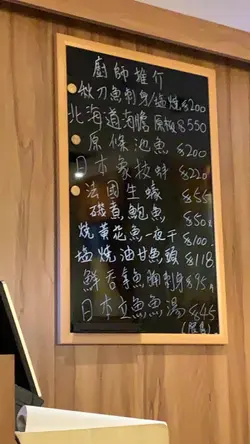 廚師推介
秋刀魚刺身/塩燒 $200
北海道海膽 原板 $550
原條池魚 $200
日本象拔蚌 $220
法國生蠔 $55
磯煮鮑魚 $50
燒黃花魚一夜干 $100
塩燒油甘魚頭 $118
鮮吞拿魚腩刺身 $95
日本立魚魚湯 $45